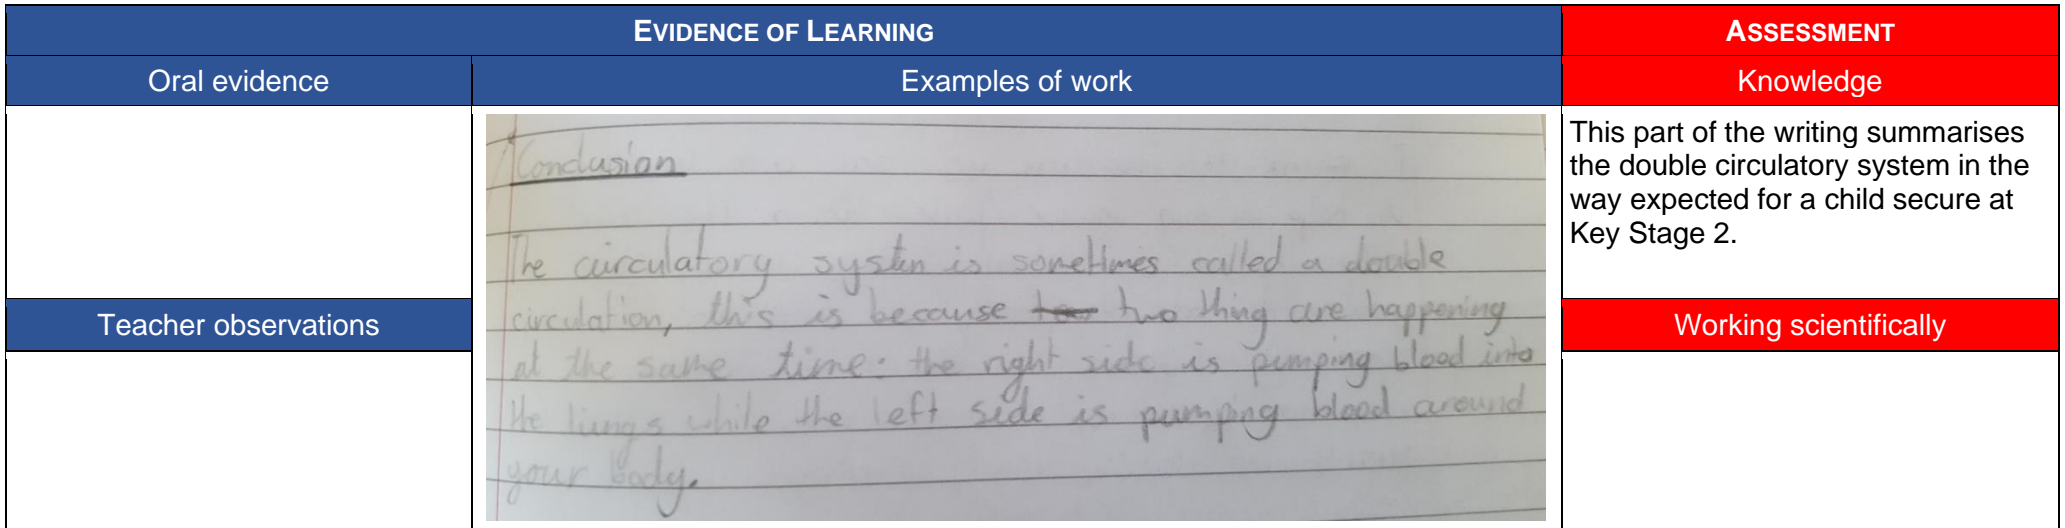 EVIDENCE OF LEARNING
ASSESSMENT
Oral evidence
Examples of work
Knowledge
Conclusion
The circulatory system is sometimes called a double
circulation, this is because two thing are happening
at the same time: the right side is pumping blood into
the lungs while the left side is pumping blood around
your body.
This part of the writing summarises
the double circulatory system in the
way expected for a child secure at
Key Stage 2.
Teacher observations
Working scientifically